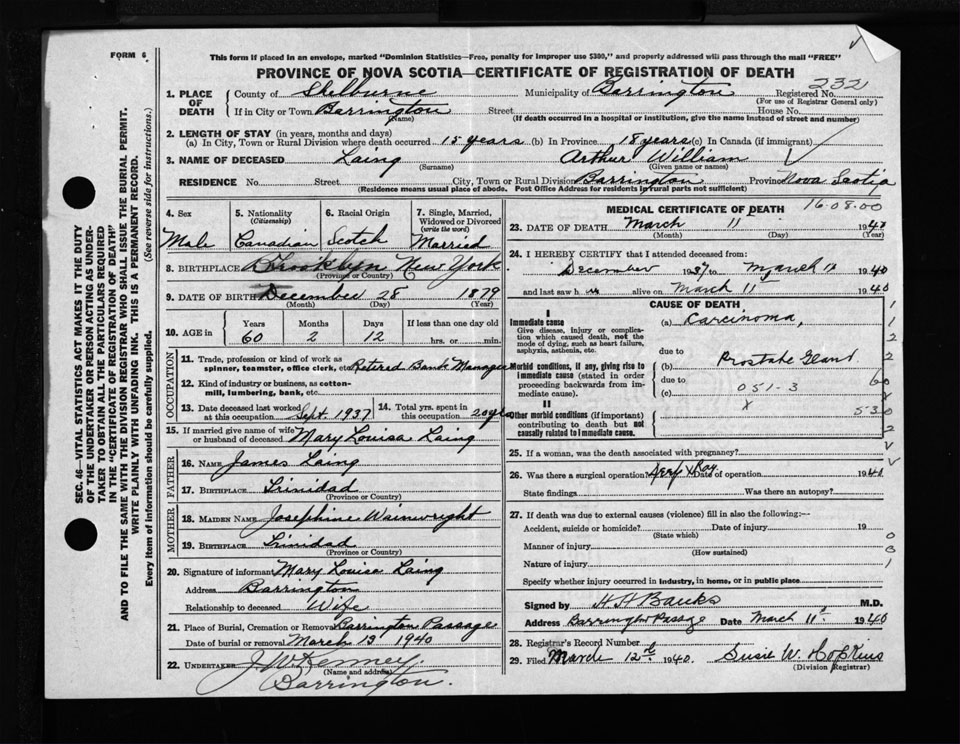 FORM 6
This form if placed in an envelope, marked "Dominion Statistics—Free, penalty for improper use $300," and properly addressed will pass through the mail "FREE"
PROVINCE OF NOVA SCOTIA—CERTIFICATE OF REGISTRATION OF DEATH
232
1. PLACE OF DEATH
County of Shelburne Municipality of Barrington Registered No.
(For use of Registrar General only)
If in City or Town Barrington Street House No.
(Name) (If death occurred in a hospital or institution, give the name instead of street and number)
2. LENGTH OF STAY (in years, months and days)
(a) In City, Town or Rural Division where death occurred 15 years (b) In Province 18 years (c) In Canada (if immigrant)
3. NAME OF DECEASED Laing Arthur William
(Surname) (Given name or names)
RESIDENCE No. Street City, Town or Rural Division Barrington Province Nova Scotia
(Residence means usual place of abode. Post Office Address for residents in rural parts not sufficient)
4. Sex
Male
5. Nationality (Citizenship)
Canadian
6. Racial Origin
Scotch
7. Single, Married, Widowed or Divorced (write the word)
Married
8. BIRTHPLACE Brooklyn New York
(Province or Country)
9. DATE OF BIRTH December 28 1879
(Month) (Day) (Year)
10. AGE in
Years Months Days If less than one day old
60 2 12 hrs. or min.
OCCUPATION
11. Trade, profession or kind of work as spinner, teamster, office clerk, etc. Retired Bank Manager
12. Kind of industry or business, as cotton-mill, lumbering, bank, etc.
13. Date deceased last worked at this occupation Sept. 1937
14. Total yrs. spent in this occupation 20 yrs
15. If married give name of wife or husband of deceased Mary Louisa Laing
FATHER
16. NAME James Laing
17. BIRTHPLACE Trinidad
(Province or Country)
MOTHER
18. MAIDEN NAME Josephine Wainwright
19. BIRTHPLACE Trinidad
(Province or Country)
20. Signature of informant Mary Louisa Laing
Address Barrington
Relationship to deceased Wife
21. Place of Burial, Cremation or Removal Barrington Passage
Date of burial or removal March 13 1940
22. UNDERTAKER J. W. Kenney
(Name and address)
Barrington.
MEDICAL CERTIFICATE OF DEATH
16.08.00
23. DATE OF DEATH March 11 1940
(Month) (Day) (Year)
24. I HEREBY CERTIFY that I attended deceased from:
December 1937 to March 11 1940
and last saw h im alive on March 11 1940
CAUSE OF DEATH
I
Immediate cause
Give disease, injury or complication which caused death, not the mode of dying, such as heart failure, asphyxia, asthenia, etc.
(a) Carcinoma,
due to
Morbid conditions, if any, giving rise to immediate cause (stated in order proceeding backwards from immediate cause).
(b) Prostate Gland
due to
(c) 051-3
II
Other morbid conditions (if important) contributing to death but not causally related to immediate cause.
x
530
25. If a woman, was the death associated with pregnancy?
26. Was there a surgical operation? X Ray Date of operation 1940
State findings Was there an autopsy?
27. If death was due to external causes (violence) fill in also the following:—
Accident, suicide or homicide? Date of injury 19
(State which)
Manner of injury
(How sustained)
Nature of injury
Specify whether injury occurred in industry, in home, or in public place
Signed by H H Banks M.D.
Address Barrington Passage Date March 11th 1940
28. Registrar's Record Number
29. Filed March 12th 1940 Susie W. Hopkins
(Division Registrar)
SEC. 46—VITAL STATISTICS ACT MAKES IT THE DUTY
OF THE UNDERTAKER OR PERSON ACTING AS UNDER-
TAKER TO OBTAIN ALL THE PARTICULARS REQUIRED
IN THE "CERTIFICATE OF REGISTRATION OF DEATH"
AND TO FILE THE SAME WITH THE DIVISION REGISTRAR WHO SHALL ISSUE THE BURIAL PERMIT.
WRITE PLAINLY WITH UNFADING INK. THIS IS A PERMANENT RECORD.
Every item of information should be carefully supplied. (See reverse side for instructions.)